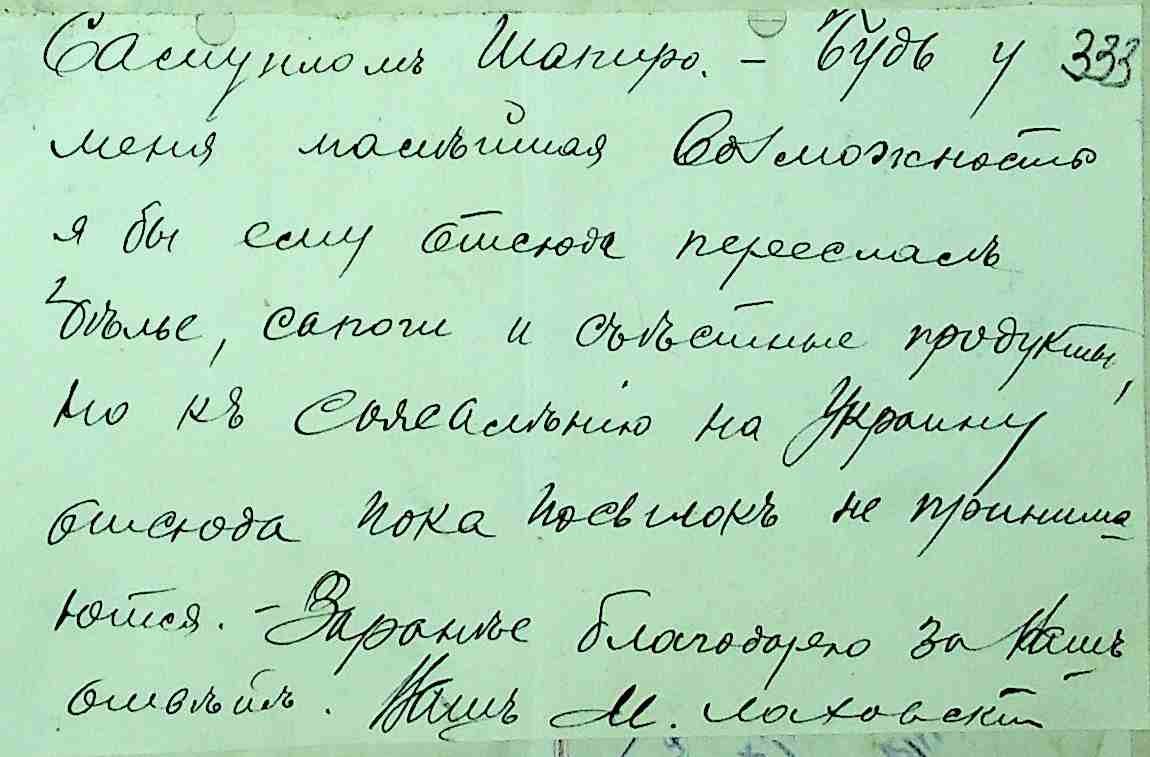 Самуилом Шапиро. – Будь у 333
меня малѣйшая возможность
я бы ему отсюда переслалъ
бѣлье, сапоги и съѣстные продукты,
но къ сожалѣнію на Украину
отсюда пока посылокъ не принима
ются. – Заранѣе благодарю за Вашъ
отвѣтъ. Вашъ М. Лаховскій